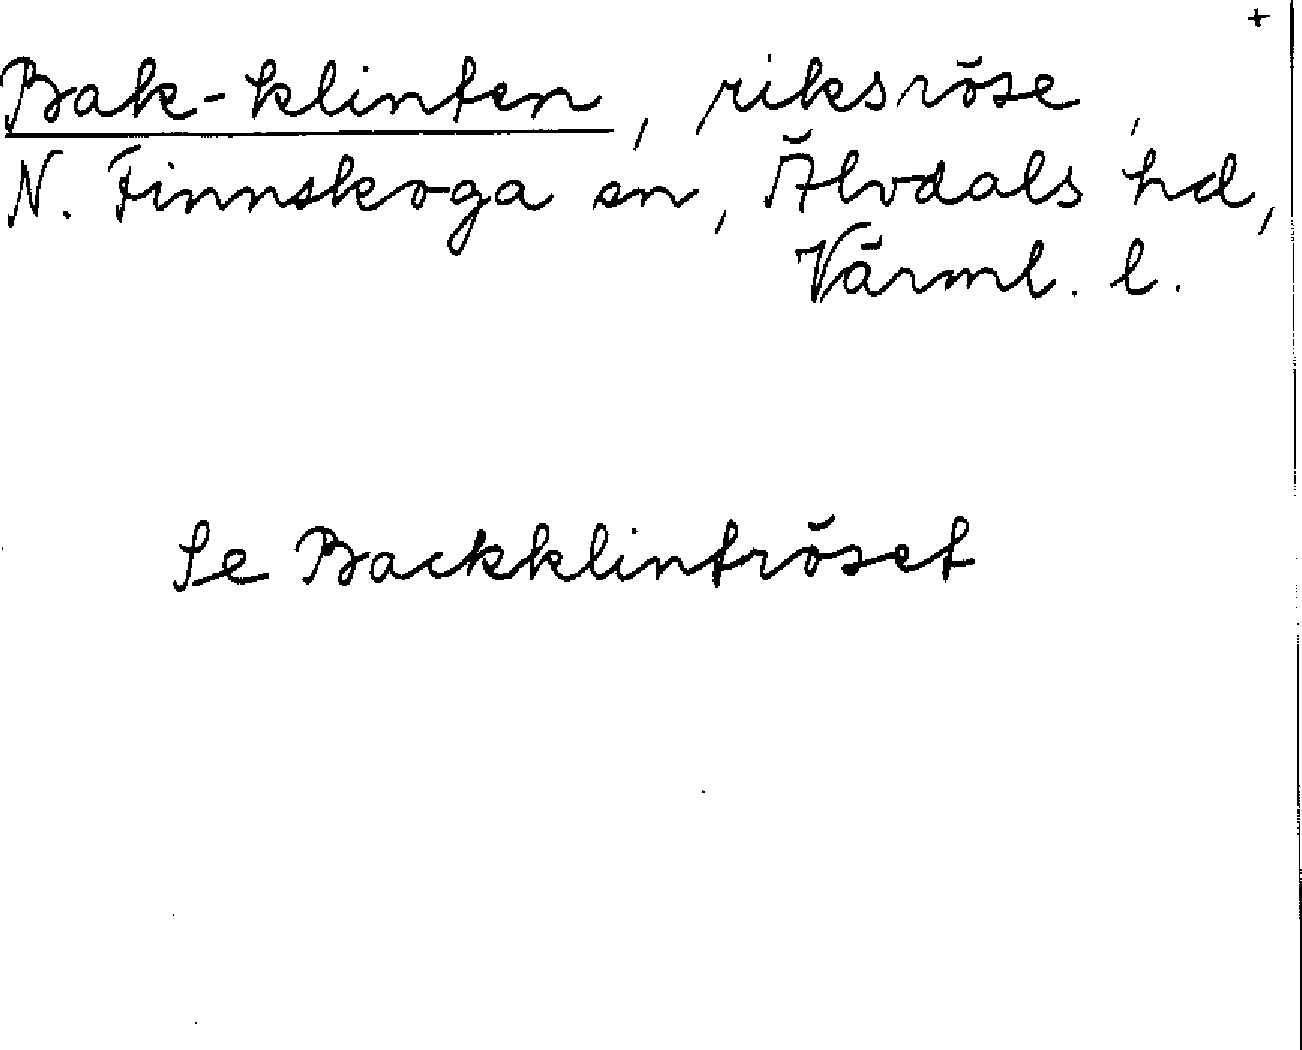 +
Bak-klinten, riksröse,
N. Finnskoga sn, Älvdals hd,
Värml. l.
Se Backklintröset